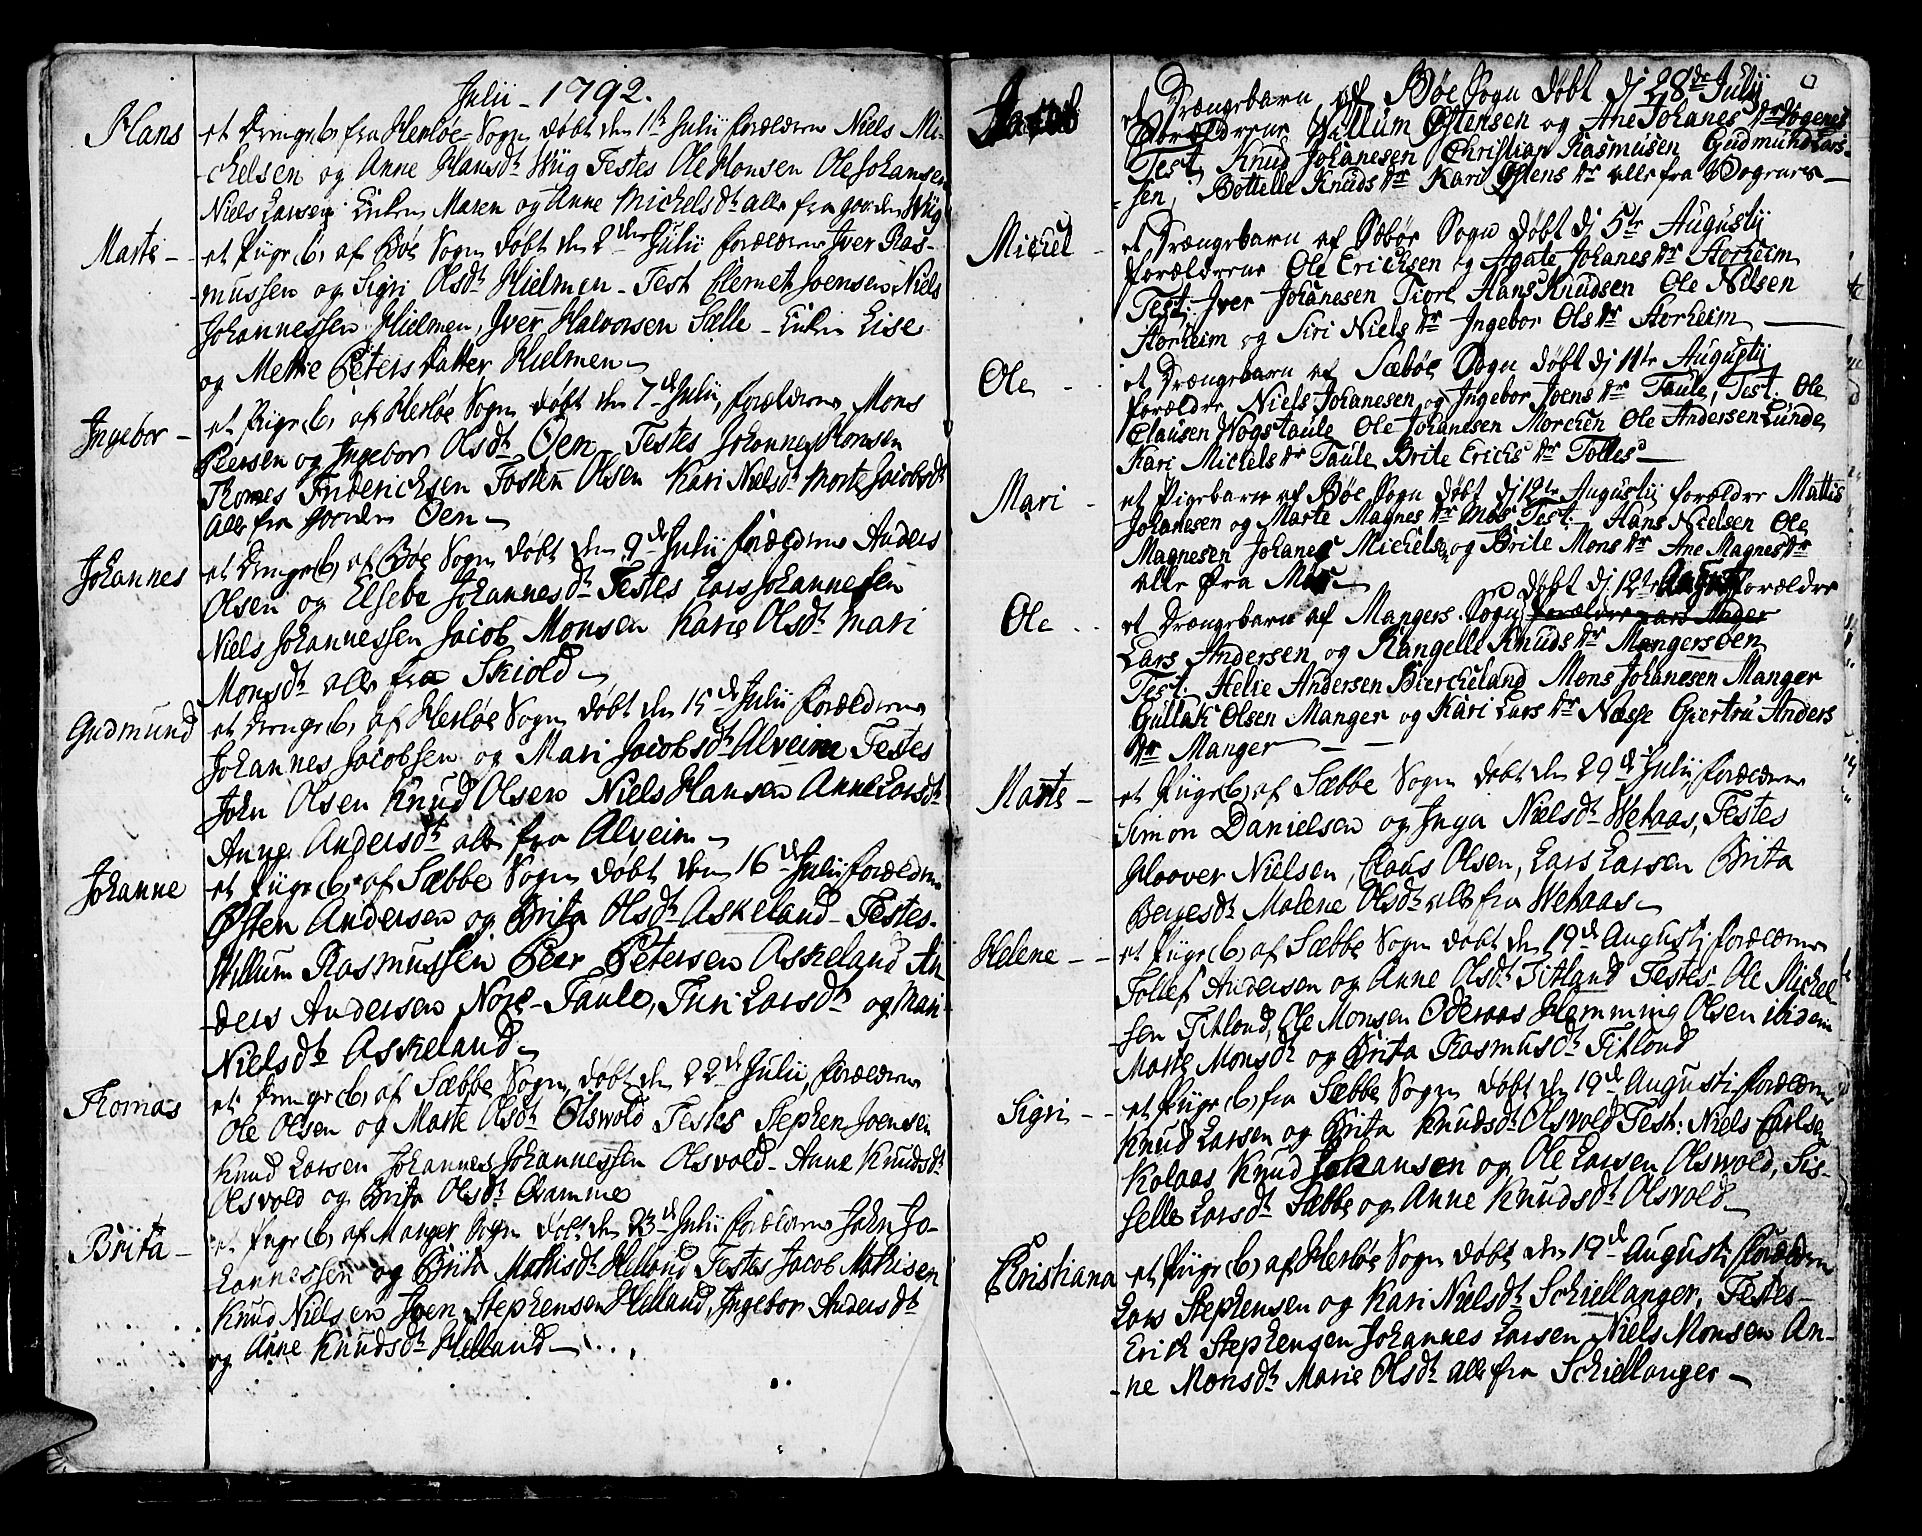 Julii - 1792.
Hans
et Drenge(b) fra Herløe Sogn døbt den 1st Julii forældrene Niels Mi-
chelsen og Anne Hansdt Wiig Testes Ole Hansen Ole Johansen
Niels Larsen Enken Maren og Anne Michelsdt alle fra gaarden Wiig
Marte -
et Pige(b) af Bøe Sogn døbt den 2den Julii forældrene Iver Ras-
mussen og Sigri Olsdt Hielmen - Test Clemet Joensen Niels
Johannessen Hielmen, Iver Halvorsen Sælle - Enken Lise
og Mette Peters Datter Hielmen
Ingebor -
et Pige(b) af Herløe Sogn døbt den 7d Julii, forældrene Mons
Peersen og Ingebor Olsdt Øen Testes Johannes Monsen
Thomes Friderichsen Tosten Olsen Kari Nielsdt Marte Jacobsdt
alle fra Gaarden Øen
Johannes
et Drenge(b) af Bøe Sogn døbt den 9d Julii forældrene Anders
Olsen og Elsebe Johannesdt Testes Lars Johannesen
Niels Johannessen Jacob Monsen Karie Olsdt Mari
Monsdt alle fra Skiold
Gudmund
et Drenge(b) af Herløe Sogn døbt den 15d Julii forældrene
Johannes Jacobsen og Mari Jacobsdt Alveim Testes
John Olsen Knud Olsen Niels Hansen Anne Larsdt
Anne Andersdt alle fra Alveim
Johanne
et Pige(b) af Sæbbe Sogn døbt den 16d Julii forældrene
Østen Andersen og Brita Olsdt Askeland - Testes
Willum Rasmussen Peer Petersen Askeland An
ders Andersen Nore-Taule, Turi Larsdt og Mari
Nielsdt Askeland
Thomas
et Drenge(b) af Sæbbe Sogn døbt den 22d Julii, forældrene
Ole Olsen og Marte Olsdt Olswold Testes Stephen Joensen
Knud Larsen Johannes Johannessen Olsvold - Anne Knudsdt
Olsvold og Brita Olsdt
Brita -
et Pige(b) af Manger Sogn døbt den 23d Julii forældrene John Jo-
hannessen og Brita Mathisdt Helland Testes Jacob Mathisen
Knud Nielsen Joen Stephensen Helland, Ingebor Andersdt
og Anne Knudsdt Helland
Jacob
et Drængebarn af Bøe Sogn døbt dj 28de Julij
Forældrene Willum Østensen og Ane Johanes dr Vogenes
Test. Knud Johanesen Christian Rasmusen Gudmund Lars-
sen, Bottelle Knuds dr Kari Østens dr alle fra Wognæs
Michel -
et Drængebarn af Sæbøe Sogn døbt dj 5te Augustij
forældrene Ole Erichsen og Agate Johanes dr Storheim
Test: Iver Johanesen Hans Knudsen Ole Nilsen
Storheim og Siri Niels dr Ingebor Ols dr Storheim
Ole -
et Drængebarn af Sæbøe Sogn døbt dj 11te Augustij
forældre Niels Johanesen og Ingebor Joens dr Taule, Test. Ole
Clausen Wogstaule Ole Johanesen Morchen Ole Andersen Lunde
Kari Michels dr Taule Brite Erichs dr
Mari -
et Pigebarn af Bøe Sogn døbt dj 12te Augustij forældre Mattis
Johanesen og Marte Magnes dr Mos Test. Hans Nielsen Ole
Magnesen Johanes Michelsen og Brite Mons dr Ane Magnes dr
alle fra Mos
Ole -
døbt dj 12te August forældre
et Drængebarn af Mangers Sogn forældre Lars Ander
Lars Andersen og Rangelle Knuds dr Mangersøen
Test. Helie Andersen Biercheland Mons Johanesen Manger
Gullak Olsen Manger og Kari Lars dr Næsse Giertru Anders
dr Manger
Marte -
et Pige(b) af Sæbbe Sogn døbt den 29d Julii forældrene
Simon Danielsen og Inga Nielsdt Wetaas, Testes
Haaver Nielsen, Claus Olsen, Lars Larsen Brita
Malene Olsdt alle fra Wetaas
Helene - -
et Pige(b) af Sæbbe Sogn døbt den 19d Augusti forældrene
Tollef Andersen og Anne Olsdt Titland Testes Ole Michel
sen Titland, Ole Monsen Oderaas Hemming Olsen ibidem
Marte Monsdt og Brita Rasmusdt Titland
Sigri - -
et Pige(b) fra Sæbbe Sogn døbt den 19d Augusti forældrene
Knud Larsen og Brita Knudsdt Olsvold Test: Niels Carlsen
Kolaas Knud Johansen og Ole Larsen Olswold, Sis-
selle Larsdt Sæbbe og Anne Knudsdt Olsvold
Christiana
et Pige(b) af Herløe Sogn døbt den 19d Augusti forældrene
Lars Stephensen og Kari Nielsdt Schiellanger, Testes -
Erich Stephensen Johannes Larsen Niels Monsen An-
-ne Monsdt Marie Olsdt alle fra Schiellanger